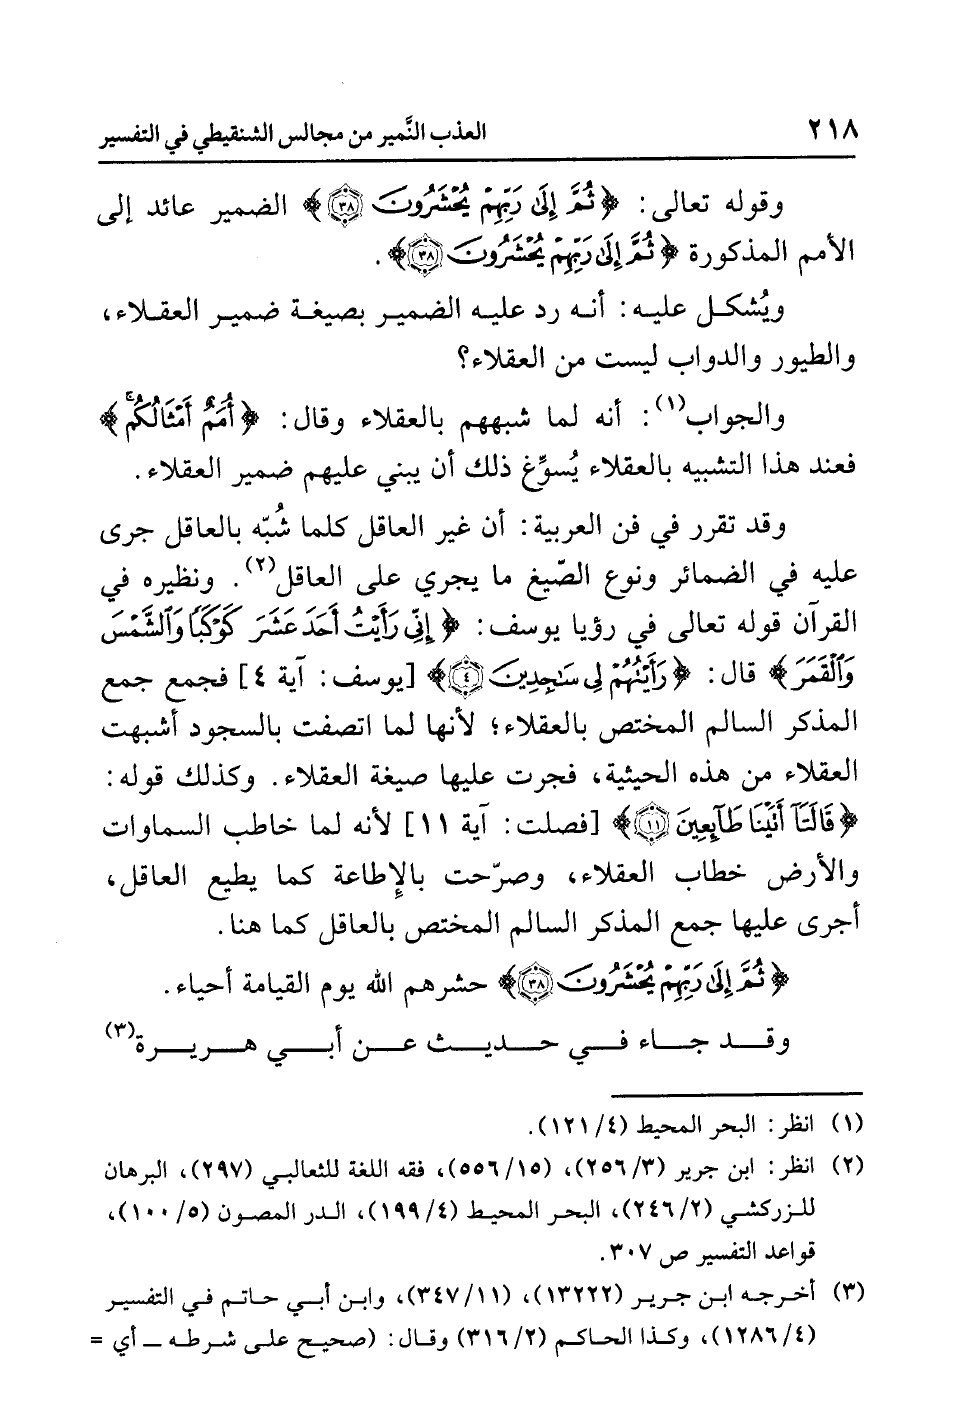 ٢١٨ العذب النَّمير من مجالس الشنقيطي في التفسير
وقوله تعالى: ﴿ثُمَّ إِلَىٰ رَبِّهِمْ يُحْشَرُونَ ﴿٣٨﴾﴾ الضمير عائد إلى
الأمم المذكورة ﴿ثُمَّ إِلَىٰ رَبِّهِمْ يُحْشَرُونَ ﴿٣٨﴾﴾.
ويُشكل عليه: أنه رد عليه الضمير بصيغة ضمير العقلاء،
والطيور والدواب ليست من العقلاء؟
والجواب(١): أنه لما شبههم بالعقلاء وقال: ﴿أُمَمٌ أَمْثَالُكُم﴾
فعند هذا التشبيه بالعقلاء يُسوِّغ ذلك أن يبني عليهم ضمير العقلاء.
وقد تقرر في فن العربية: أن غير العاقل كلما شُبّه بالعاقل جرى
عليه في الضمائر ونوع الصّيغ ما يجري على العاقل(٢). ونظيره في
القرآن قوله تعالى في رؤيا يوسف: ﴿إِنِّي رَأَيْتُ أَحَدَ عَشَرَ كَوْكَبًا وَالشَّمْسَ
وَالْقَمَرَ﴾ قال: ﴿رَأَيْتُهُمْ لِي سَاجِدِينَ ﴿٤﴾﴾ [يوسف: آية ٤] فجمع جمع
المذكر السالم المختص بالعقلاء؛ لأنها لما اتصفت بالسجود أشبهت
العقلاء من هذه الحيثية، فجرت عليها صيغة العقلاء. وكذلك قوله:
﴿قَالَتَا أَتَيْنَا طَائِعِينَ ﴿١١﴾﴾ [فصلت: آية ١١] لأنه لما خاطب السماوات
والأرض خطاب العقلاء، وصرّحت بالإطاعة كما يطيع العاقل،
أجرى عليها جمع المذكر السالم المختص بالعاقل كما هنا.
﴿ثُمَّ إِلَىٰ رَبِّهِمْ يُحْشَرُونَ ﴿٣٨﴾﴾ حشرهم الله يوم القيامة أحياء.
وقد جاء في حديث عن أبي هريرة(٣)
(١) انظر: البحر المحيط (٤/١٢١).
(٢) انظر: ابن جرير (٣/٢٥٦)، (١٥/٥٥٦)، فقه اللغة للثعالبي (٢٩٧)، البرهان
للزركشي (٢/٢٤٦)، البحر المحيط (٤/١٩٩)، الدر المصون (٥/١٠٠)،
قواعد التفسير ص ٣٠٧.
(٣) أخرجه ابن جرير (١٣٢٢٢)، (١١/٣٤٧)، وابن أبي حاتم في التفسير
(٤/١٢٨٦)، وكذا الحاكم (٢/٣١٦) وقال: (صحيح على شرطه ــ أي =